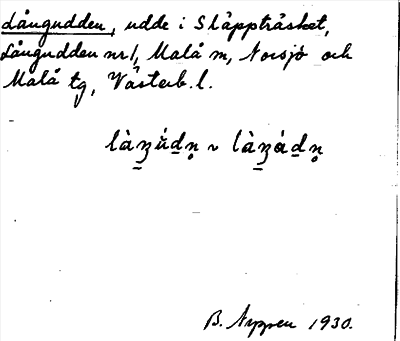 Långudden, udde i Släppträsket,
Långudden nr 1, Malå m, Norsjö och
Malå tg, Västerb. l.
B. Nyppen 1930.